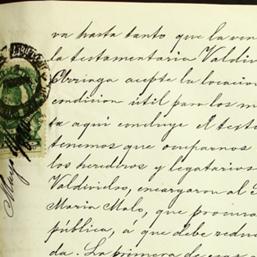 va hasta tanto que la ven
la testamentaria Valdivi
acepte la locacion
condicion útil para los m
ta aquí concluye el testi
tenemos que ocuparnos
los herederos y legatarios
Valdivielso, encargaron al
Maria Malo, que procura
pública, a que debe redu
da. La primera de esas